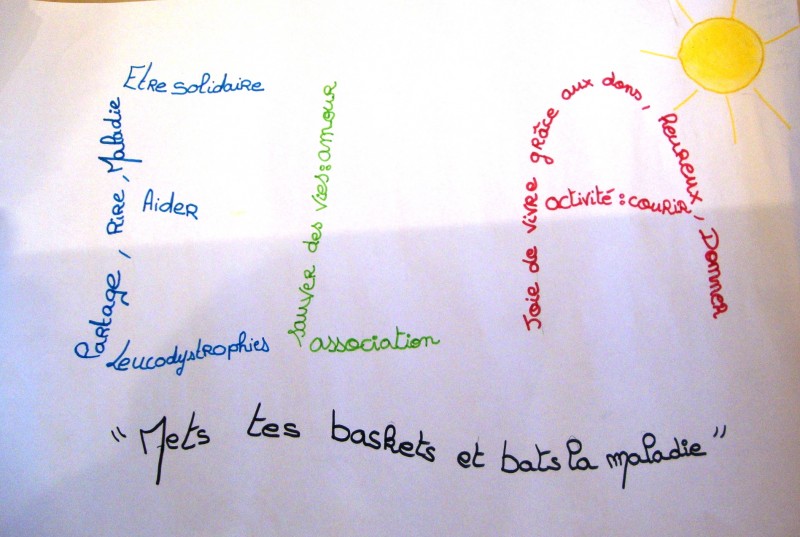 Etre solidaire
Partage, Rire, Maladie
Aider
Leucodystrophies
sauver des vies: amour
association
Joie de vivre grâce aux dons, heureux, Donner
activité: courir
"Mets tes baskets et bats la maladie"